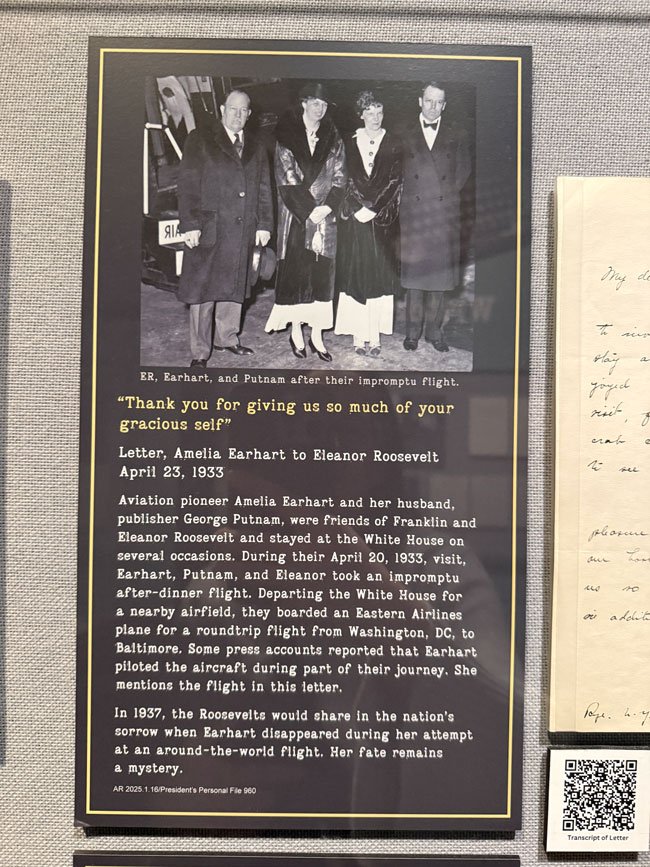 AIЯ
ER, Earhart, and Putnam after their impromptu flight.
“Thank you for giving us so much of your
gracious self”
Letter, Amelia Earhart to Eleanor Roosevelt
April 23, 1933
Aviation pioneer Amelia Earhart and her husband,
publisher George Putnam, were friends of Franklin and
Eleanor Roosevelt and stayed at the White House on
several occasions. During their April 20, 1933, visit,
Earhart, Putnam, and Eleanor took an impromptu
after-dinner flight. Departing the White House for
a nearby airfield, they boarded an Eastern Airlines
plane for a roundtrip flight from Washington, DC, to
Baltimore. Some press accounts reported that Earhart
piloted the aircraft during part of their journey. She
mentions the flight in this letter.
In 1937, the Roosevelts would share in the nation’s
sorrow when Earhart disappeared during her attempt
at an around-the-world flight. Her fate remains
a mystery.
AR 2025.1.16/President’s Personal File 960
My
stay
visit,
to see
pleasure
us so
Transcript of Letter